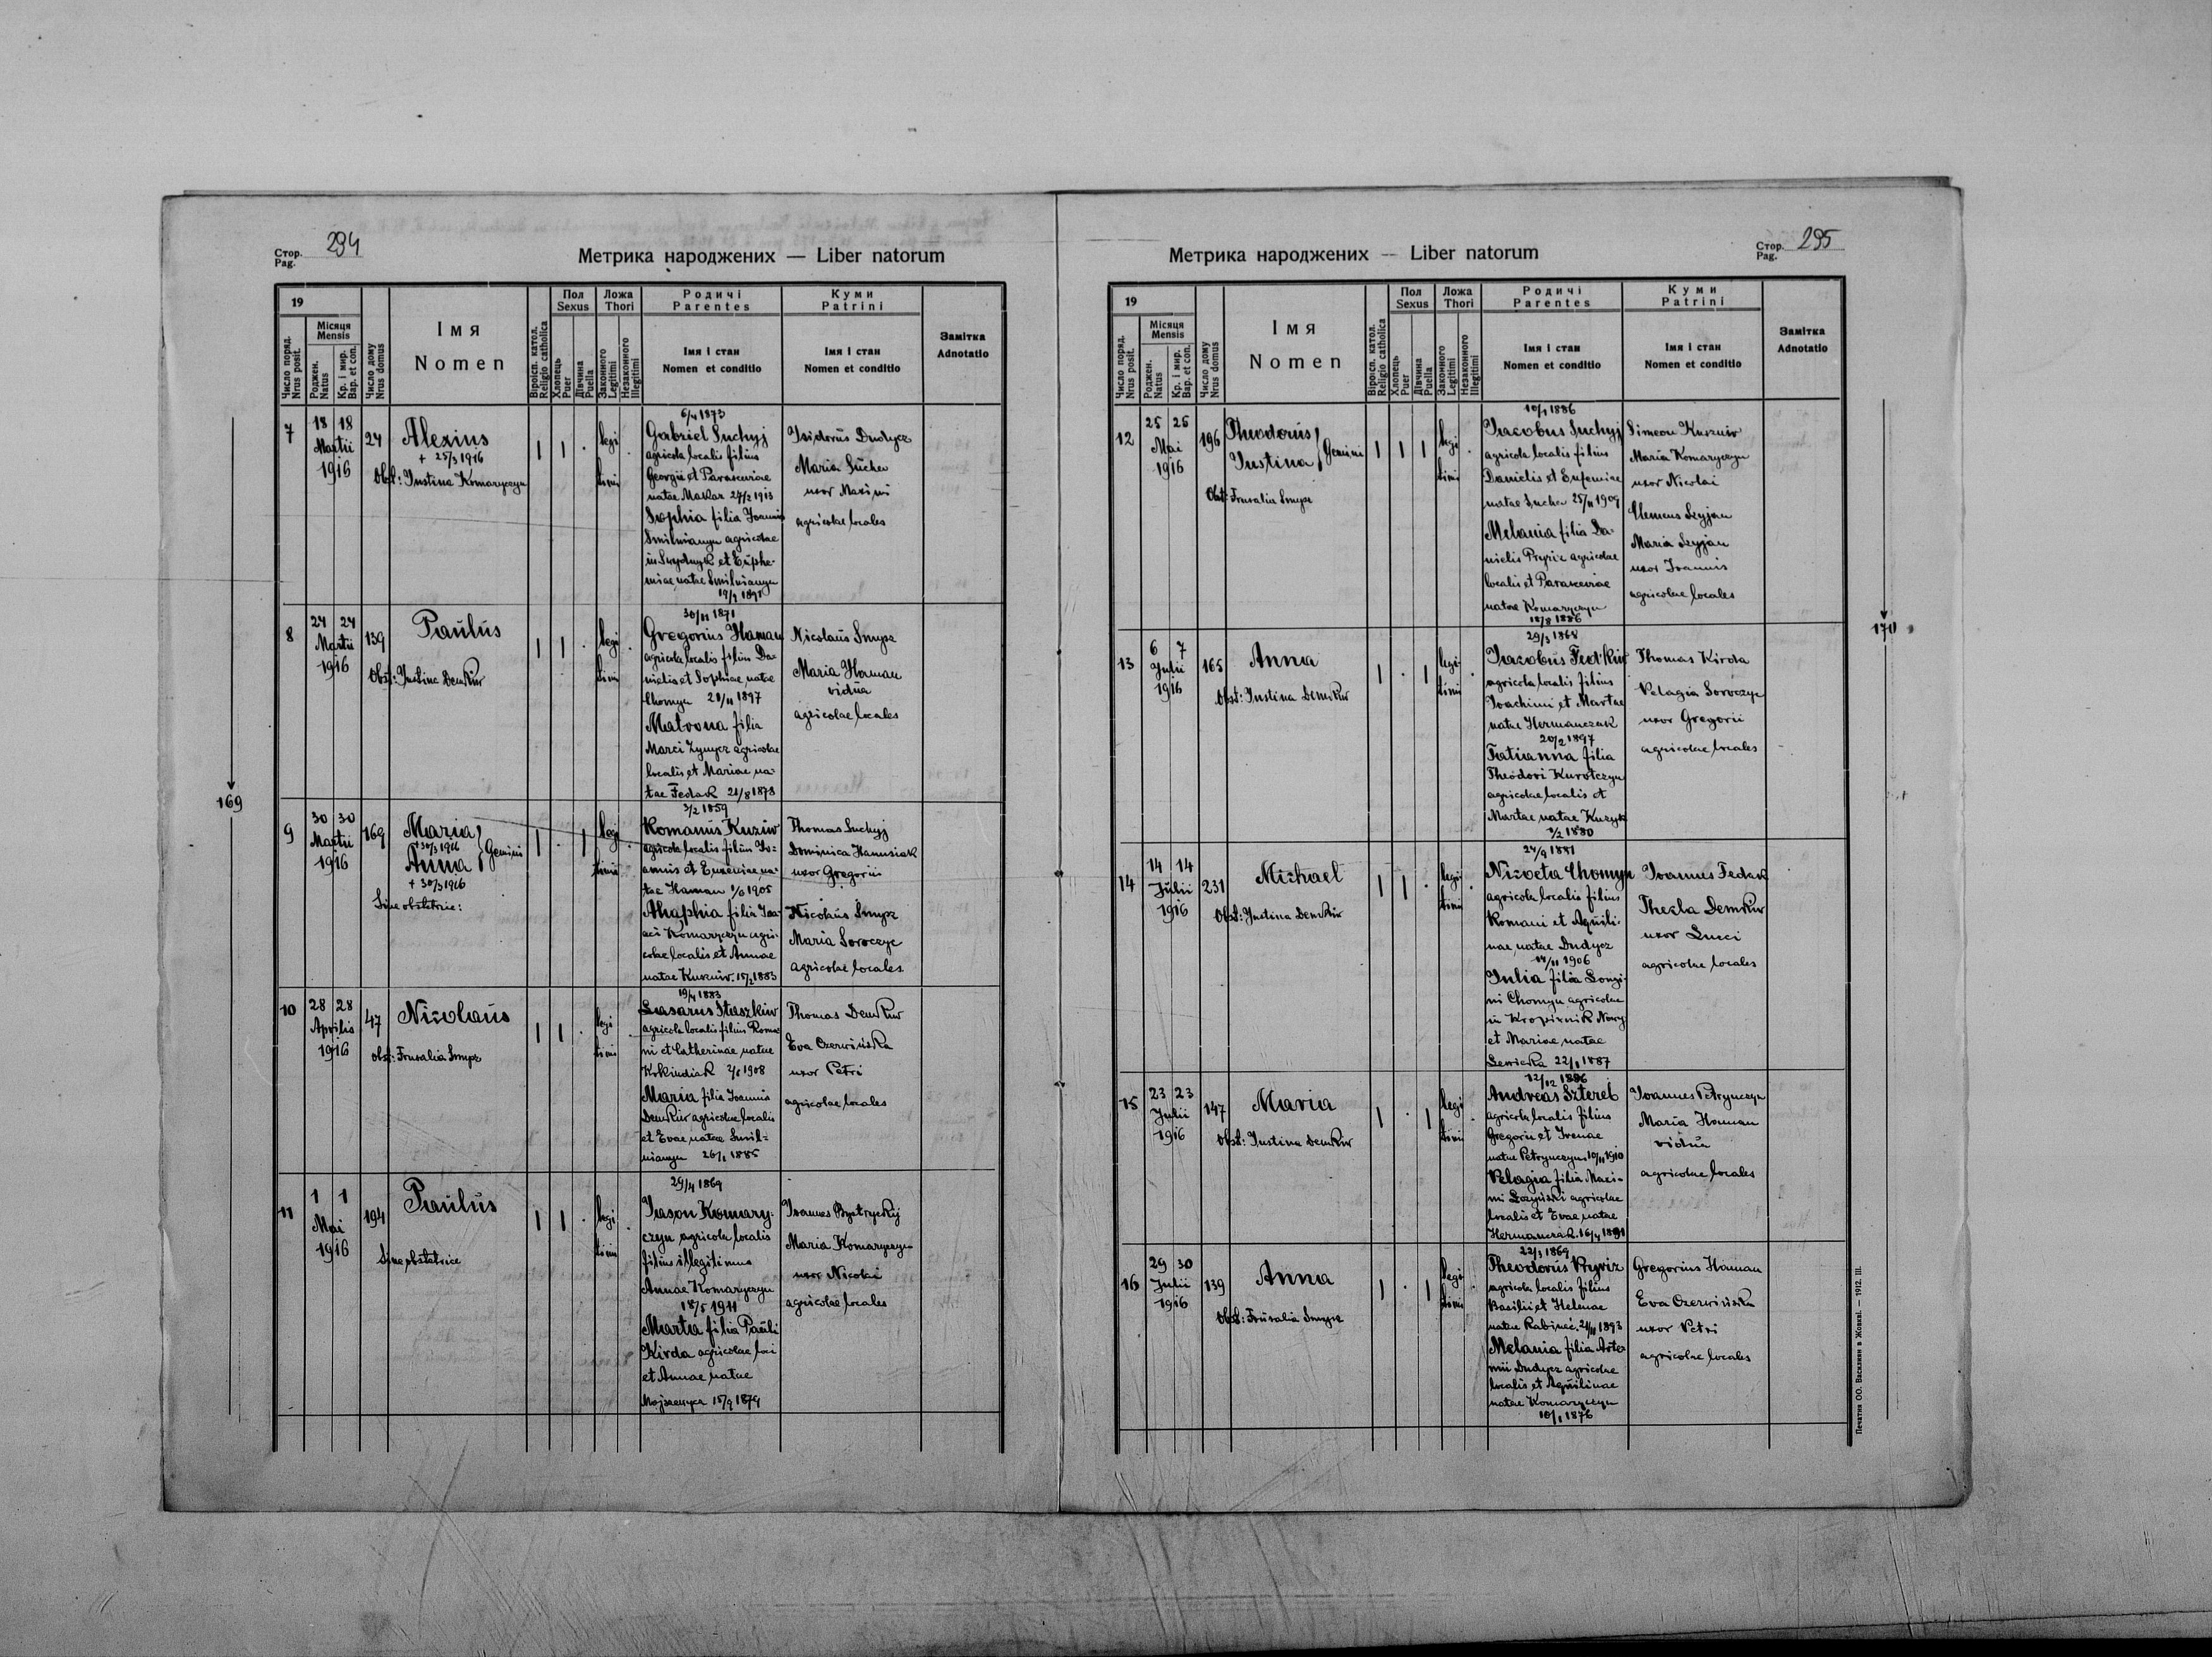 Стор. 294
Pag.
Метрика народжених — Liber natorum
19
Число поряд.
Nrus posit.
Місяця
Mensis
Роджен.
Natus
Кр. і мир.
Bap. et con.
Число дому
Nrus domus
Імя
Nomen
Віроісп. катол.
Religio catholica
Пол
Sexus
Хлопець
Puer
Дівчина
Puella
Ложа
Thori
Законного
Legitimi
Незаконного
Illegitimi
Родичі
Parentes
Імя і стан
Nomen et conditio
Куми
Patrini
Імя і стан
Nomen et conditio
Замітка
Adnotatio
7
18 18
Martii
1916
24
Alexius
+ 25/3 1916
Obst: Justina Komaryczyn
legi
timi
6/4 1873
Gabriel Suchyj
agricola localis filius
Georgii et Parasceviae
natae Makar 24/2 1913
Sophia filia Joannis
Smilnianyn agricolae
in et Euphe-
miae natae Smilnianyn
19/9 1891
Isidorus Dudycz
Maria Suchu
uxor Maximi
agricolae locales
8
24 24
Martii
1916
139
Paulus
Obst: Justina Demkiw
legi
timi
30/11 1871
Gregorius Haman
agricola localis filius Da-
nielis et Sophiae natae
Chomyn 28/11 1897
Matrona filia
Marci Zynycz agricolae
localis et Mariae na-
tae Fedak 21/8 1878
Nicolaus Smycz
Maria Haman
vidua
agricolae locales
169
9
30 30
Martii
1916
169
Maria
+ 30/3 1916
Anna
+ 30/3 1916
Gemini
Sine obstetrice:
legi
timi
3/2 1859
Romanus Kuziw
agricola localis filius Jo-
annis et Euxeniae na-
tae Haman 1/6 1905
Ahaphia filia Isa-
aci Komaryczyn agri-
colae localis et Annae
natae Kuzniw. 15/2 1883
Thomas Suchyj
Dominica Hanusiak
uxor Gregorii
Nicolaus Smycz
Maria Soroczyc
agricolae locales
10
28 28
Aprilis
1916
47
Nicolaus
Obst: Fruzalia Smycz
legi
timi
19/4 1883
Lasarus Staszkiw
agricola localis filius Roma-
ni et Catherinae natae
Kokindiak 2/6 1908
Maria filia Joannis
Demkiw agricolae localis
et Evae natae Smil-
nianyn 26/1 1885
Thomas Demkiw
Eva Czerwińska
uxor Petri
agricolae locales
11
1 1
Mai
1916
194
Paulus
Sine obstetrice
legi
timi
29/4 1869
Jason Komary-
czyn agricola localis
filius illegitimus
Annae Komaryczyn
18/5 1911
Marta filia Pauli
Kirda agricolae loci
et Annae natae
15/9 1874
Joannes Bystryckij
Maria Komaryczyn
uxor Nicolai
agricolae locales
Метрика народжених — Liber natorum
Стор. 295
Pag.
19
Число поряд.
Nrus posit.
Місяця
Mensis
Роджен.
Natus
Кр. і мир.
Bap. et con.
Число дому
Nrus domus
Імя
Nomen
Віроісп. катол.
Religio catholica
Пол
Sexus
Хлопець
Puer
Дівчина
Puella
Ложа
Thori
Законного
Legitimi
Незаконного
Illegitimi
Родичі
Parentes
Імя і стан
Nomen et conditio
Куми
Patrini
Імя і стан
Nomen et conditio
Замітка
Adnotatio
12
25 25
Mai
1916
196
Theodorus
Justina
Gemini
Obst: Fruzalia Smycz
legi
timi
10/1 1886
Jacobus Suchyj
agricola localis filius
Danielis et Eufemiae
natae Suchu 25/11 1909
Melania filia Da-
nielis Pryriz agricolae
localis et Parasceviae
natae Komaryczyn
18/8 1886
Simeon Kuzniw
Maria Komaryczyn
uxor Nicolai
Clemens Szyjan
Maria Szyjan
uxor Joannis
agricolae locales
13
6 7
Julii
1916
165
Anna
Obst: Justina Demkiw
legi
timi
29/3 1868
Jacobus Fedkiw
agricola localis filius
Joachimi et Martae
natae Hermanczak
20/2 1897
Tatianna filia
Theodori Kurotczyn
agricolae localis et
Martae natae Kuzyk
3/2 1880
Thomas Kirda
Pelagia Soroczyc
uxor Gregorii
agricolae locales
170
14
14 14
Julii
1916
231
Michael
Obst: Justina Demkiw
legi
timi
24/9 1881
Niceta Chomyn
agricola localis filius
Romani et Aquili-
nae natae Dudycz
14/11 1906
Julia filia Longi-
ni Chomyn agricolae
in Kropiwnik Nowy
et Mariae natae
Lewicka 22/1 1887
Joannes Fedak
Thecla Demkiw
uxor Lucci
agricolae locales
15
23 23
Julii
1916
147
Maria
Obst: Justina Demkiw
legi
timi
12/12 1886
Andreas Szterel
agricola localis filius
Gregorii et Irenae
natae Petrynczyn 10/11 1910
Pelagia filia Maxi-
mi Lozyński agricolae
localis et Evae natae
Hermanczak. 16/4 1891
Joannes Petrynczyn
Maria Haman
vidua
agricolae locales
16
29 30
Julii
1916
139
Anna
Obst: Fruzalia Smycz
legi
timi
22/3 1869
Theodorus Pryriz
agricola localis filius
Basilii et Helenae
natae Rabineć. 21/11 1893
Melania filia Arte-
mii Dudycz agricolae
localis et Aquilinae
natae Komaryczyn
10/1 1876
Gregorius Haman
Eva Czerwińska
uxor Petri
agricolae locales
Печатня ОО. Василиян в Жовкві. — 1912. III.